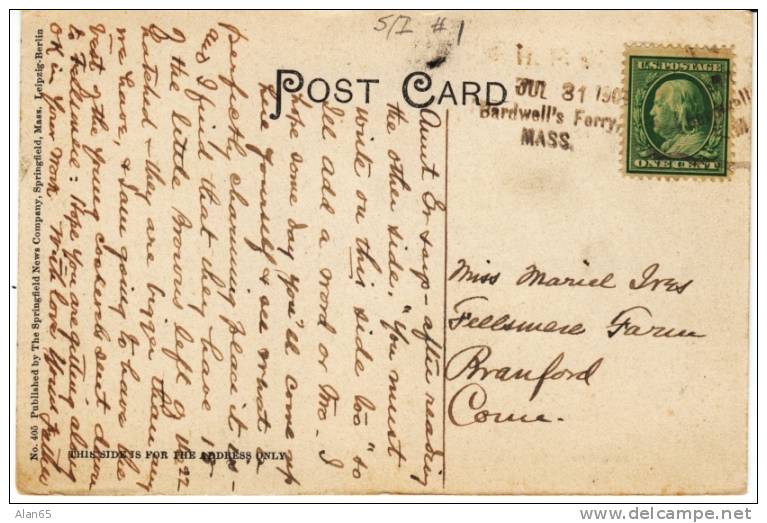 S/I # 1
POST CARD
JUL 31 190
Bardwell's Ferry,
MASS.
U.S. POSTAGE
ONE CENT
Miss Muriel Ives
Fellsmere Farm
Branford
Conn.
Aunt Em says - after reading
the other side, "You must
write on this side too" to
I'll add a word or two. I
hope some day you'll come up
here yourself & see what a
perfectly charming place it is -
and I find that they have 15
of the little Browns left of the 22
hatched - they are bigger than any
we have, & I am going to have the
best of the young cockerels sent down
to Fellsmere: Hope you are getting along
OK in your work. With love Your father
THIS SIDE IS FOR THE ADDRESS ONLY
No. 405 Published by The Springfield News Company, Springfield, Mass. Leipzig-Berlin
Alan65
www.delcampe.net